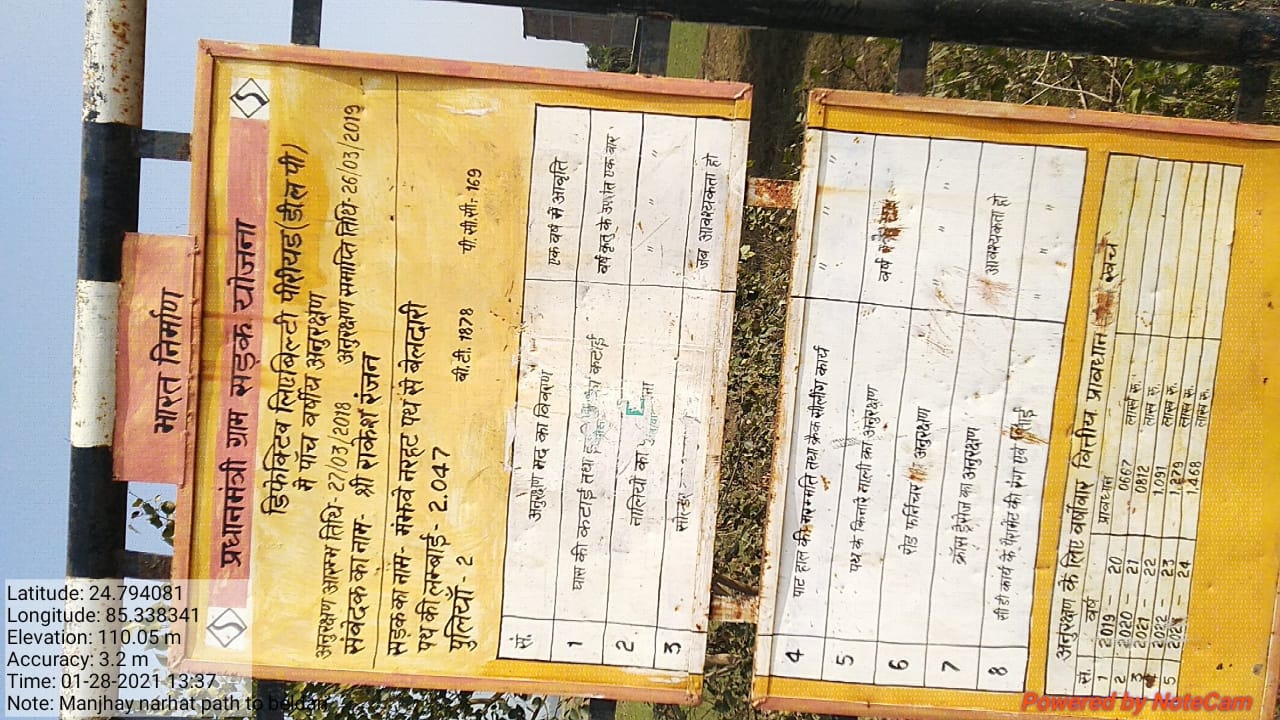 भारत निर्माण
प्रधानमंत्री ग्राम सड़क योजना
डिफेक्टिव लिएबिल्टी पीरीयड(डी एल पी)
में पाँच वर्षीय अनुरक्षण
अनुरक्षण आरम्भ तिथि- 27/03/2018 अनुरक्षण समाप्ति तिथि-26/03/2019
संवेदक का नाम- श्री राकेश रंजन
सड़क का नाम- मंझवे नरहट पथ से बेलदारी
पथ की लम्बाई- 2.047 बी.टी. 1878 पी.सी.सी. 169
पुलियाँ - 2
सं. अनुरक्षण मद का विवरण एक वर्ष में आवृति
1 घास की कटाई तथा कटाई वर्षा ऋतु के उपरांत एक बार
2 नालियों का " "
3 जब आवश्यकता हो
4 पाट होल की मरम्मति तथा क्रैक सीलींग कार्य " "
5 पथ के किनारे नाली का अनुरक्षण वर्ष
6 रोड फर्निचर का अनुरक्षण " "
7 क्रॉस ड्रेनेज का अनुरक्षण आवश्यकता हो
8 सी डी कार्य के पैरापेट की रंगाई एवं " "
अनुरक्षण के लिए वर्षवार वित्तीय प्रावधान
सं. वर्ष प्रावधान खर्च
1 2019 - 20 0.667 लाख रु.
2 2020 - 21 0.812 लाख रु.
3 2021 - 22 1.091 लाख रु.
2022 - 23 1.279 लाख रु.
5 24 1.468 लाख रु.
Latitude: 24.794081
Longitude: 85.338341
Elevation: 110.05 m
Accuracy: 3.2 m
Time: 01-28-2021 13:37
Note: Manjhay narhat path to beldari
Powered by NoteCam